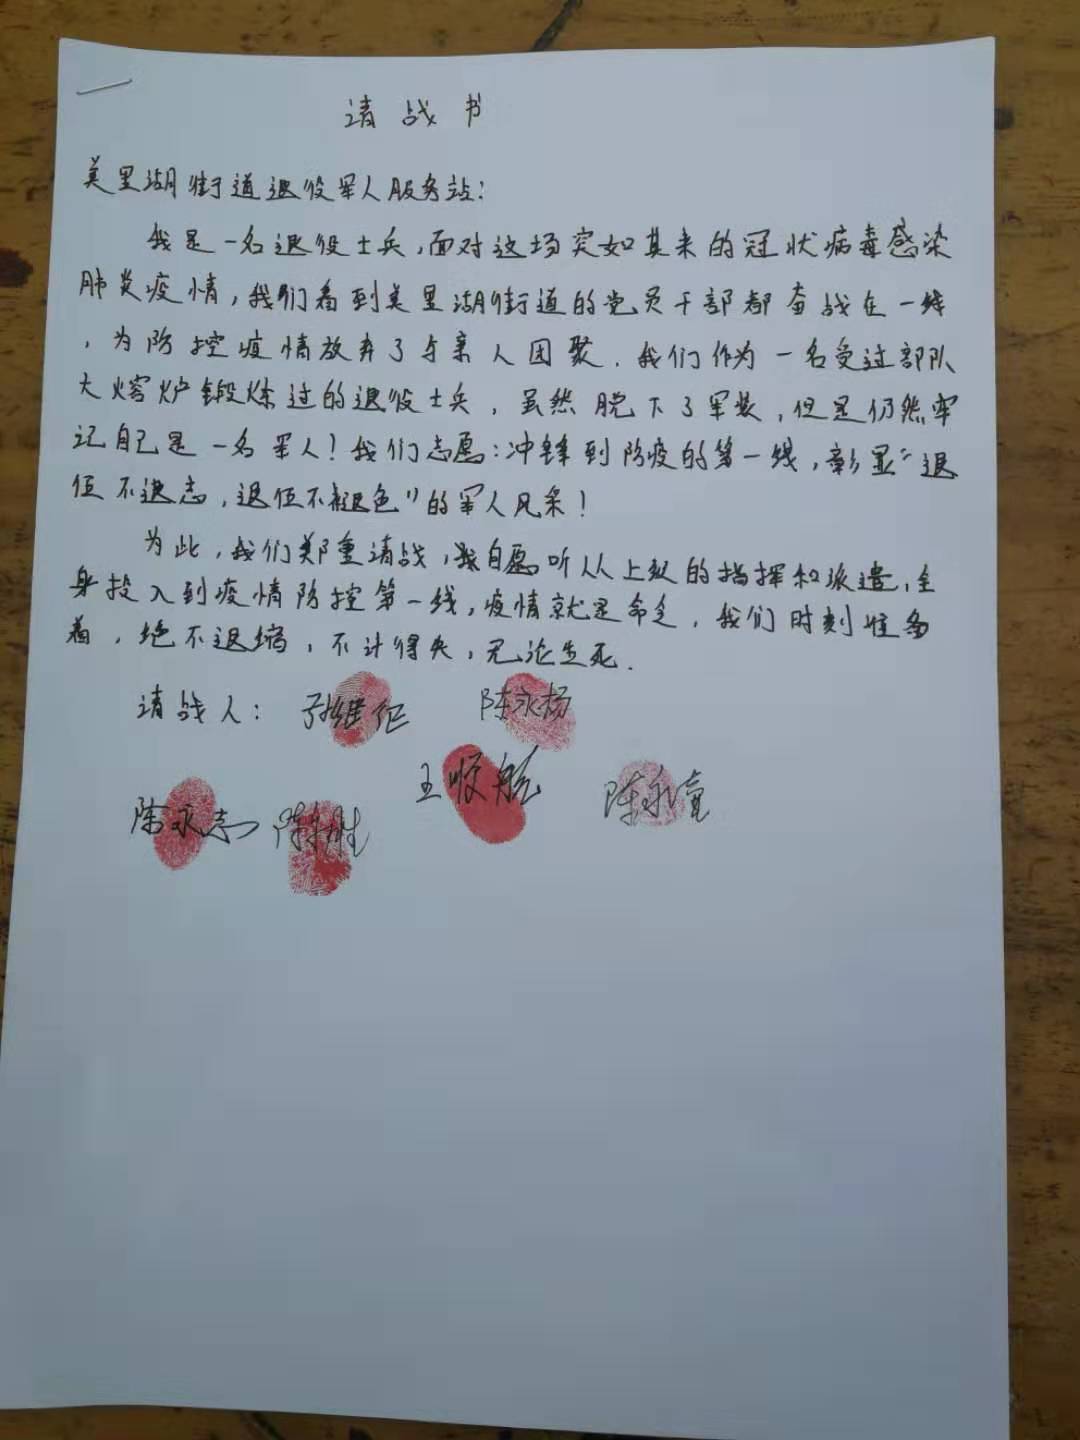 请战书
美里湖街道退役军人服务站：
我是一名退役士兵，面对这场突如其来的冠状病毒感染
肺炎疫情，我们看到美里湖街道的党员干部都奋战在一线
，为防控疫情放弃了与亲人团聚．我们作为一名受过部队
大熔炉锻炼过的退役士兵，虽然脱下了军装，但是仍然牢
记自己是一名军人！我们志愿：冲锋到防疫的第一线，彰显“退
伍不退志，退伍不褪色”的军人风采！
为此，我们郑重请战，我自愿听从上级的指挥和派遣，全
身投入到疫情防控第一线，疫情就是命令，我们时刻准备
着，绝不退缩，不计得失，无论生死．
请战人： 陈永杨
王顺航
陈永志